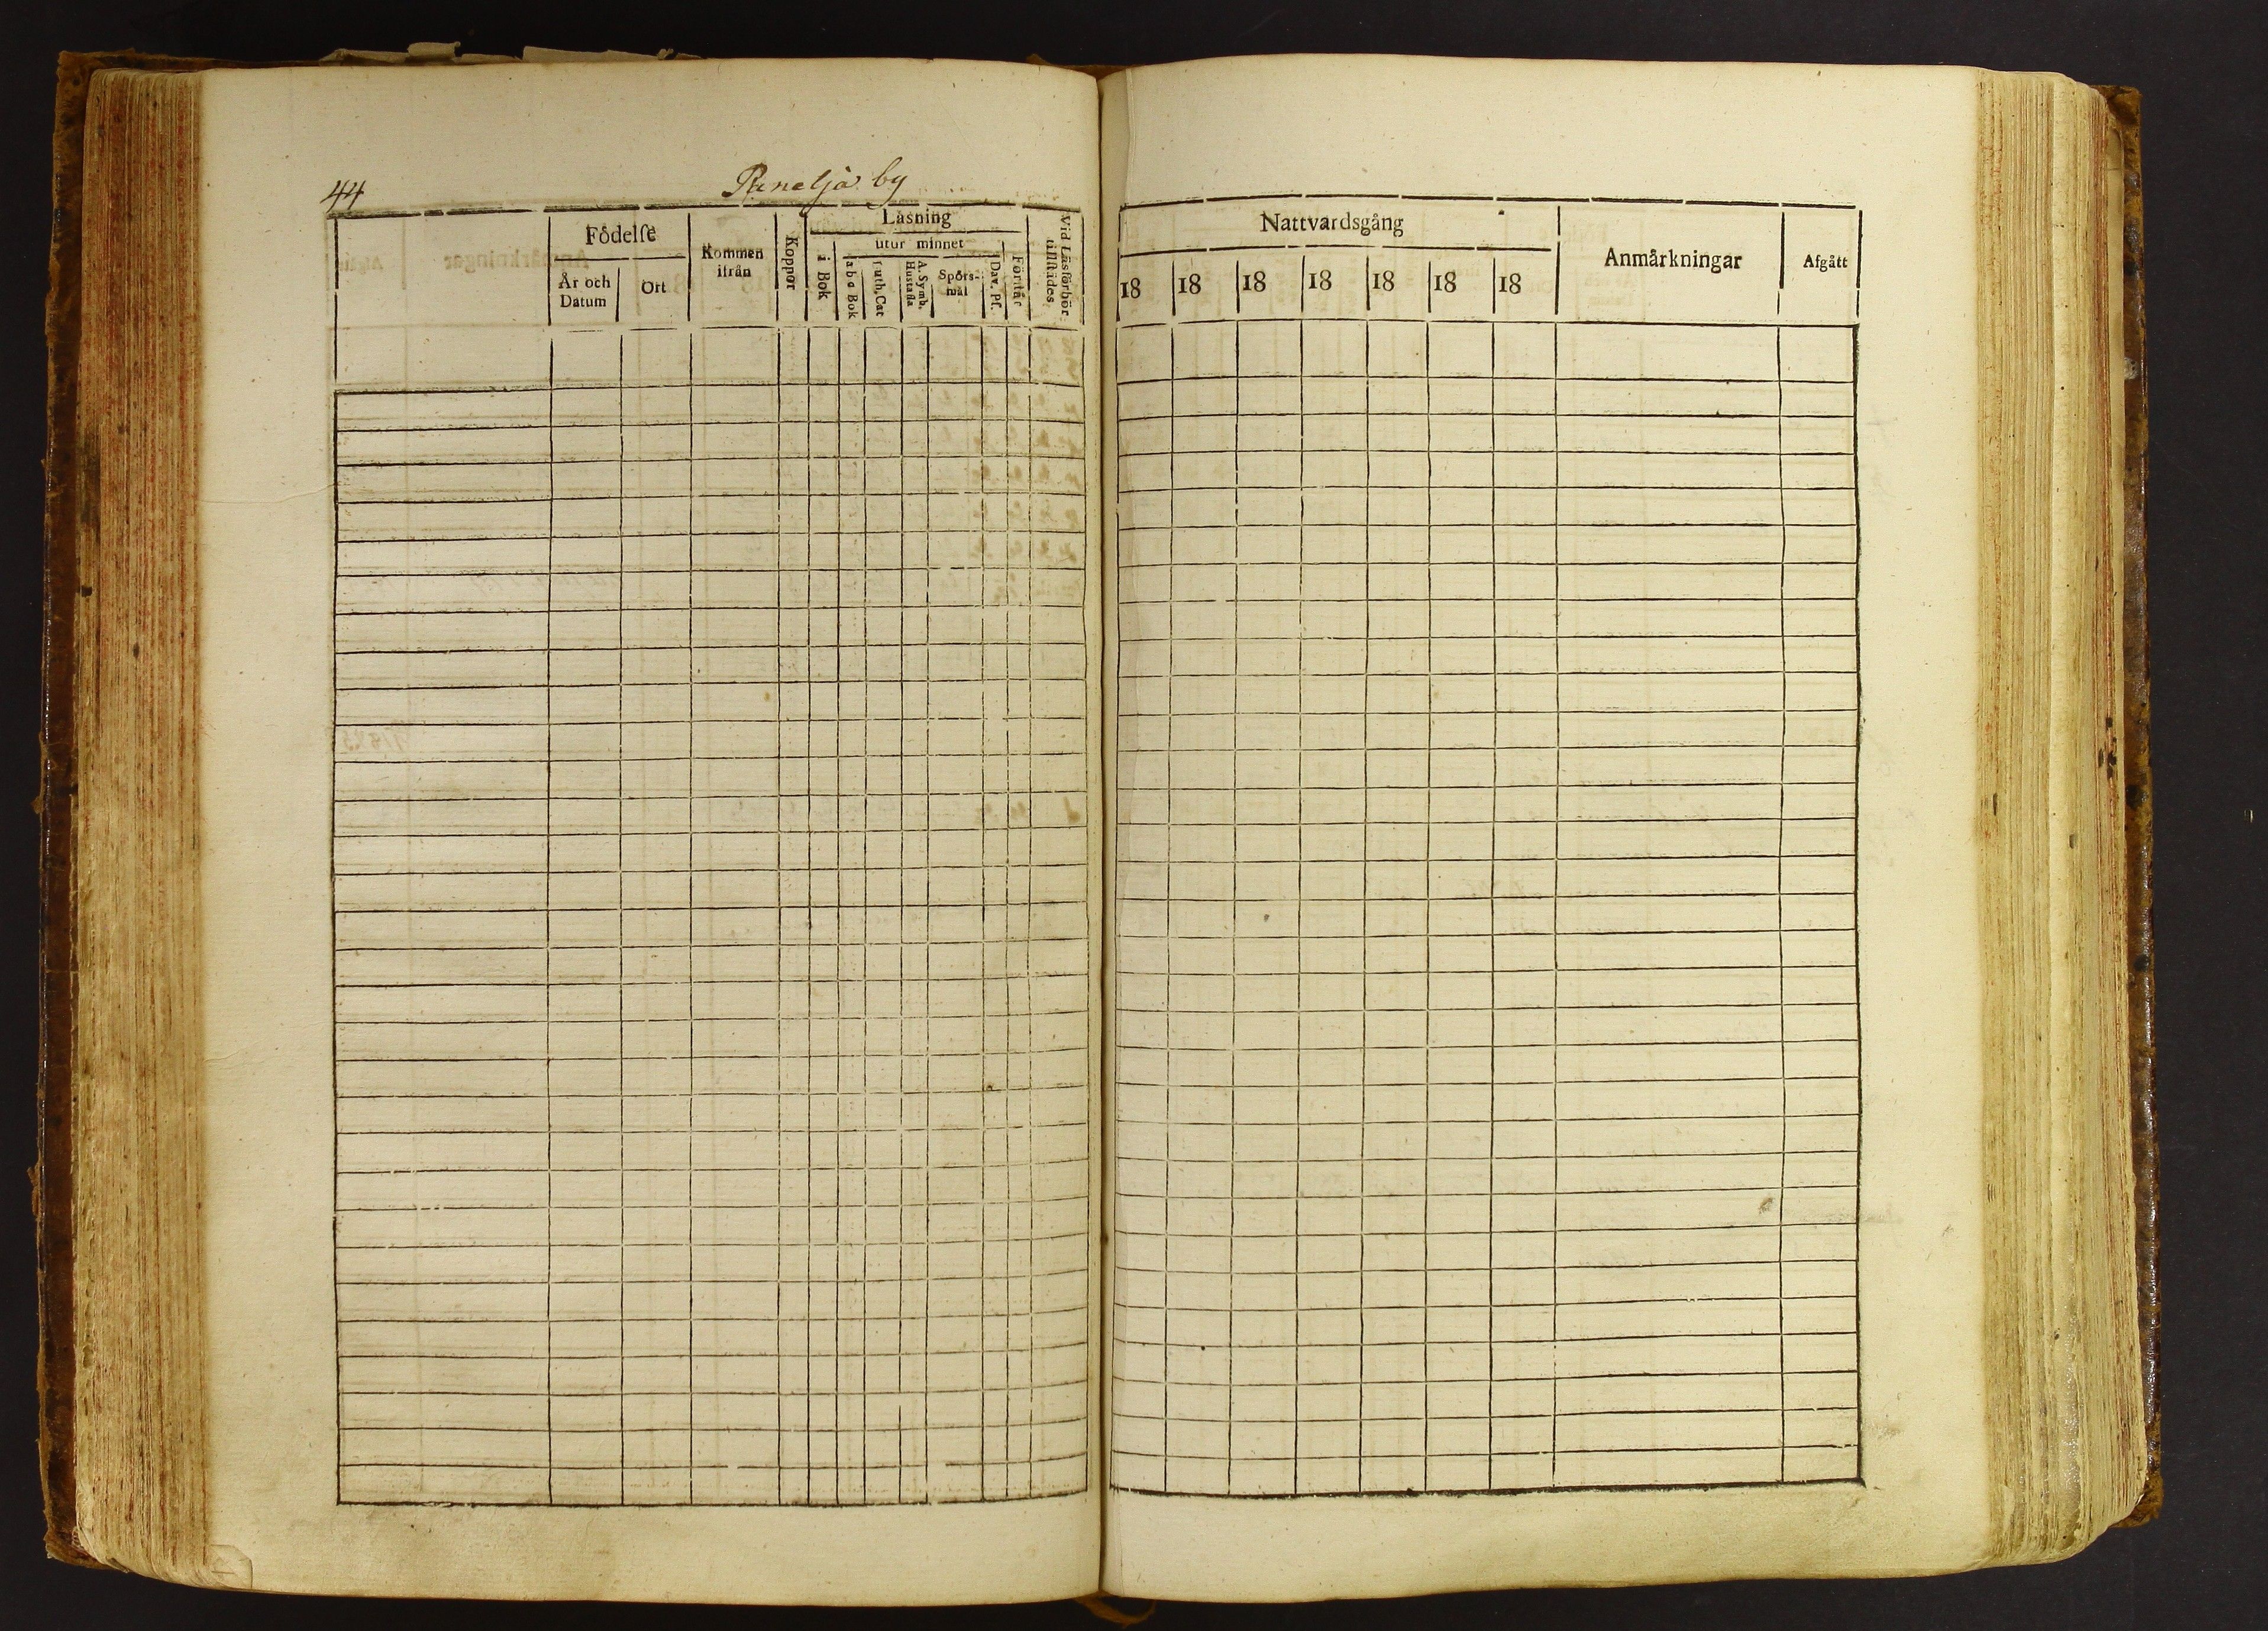 44
by
Födelſe
År och Datum
Ort
Kommen ifrån
Koppor
Läsning
i Bok
utur minnet
a b c Bok
Luth. Cat
A. Symb. Hustafla
Spörs-mål
Dav. Pſ.
Förſtår
Vid Läsförhör tillſtädes
Nattvardsgång
18 18 18 18 18 18 18
Anmärkningar
Afgått